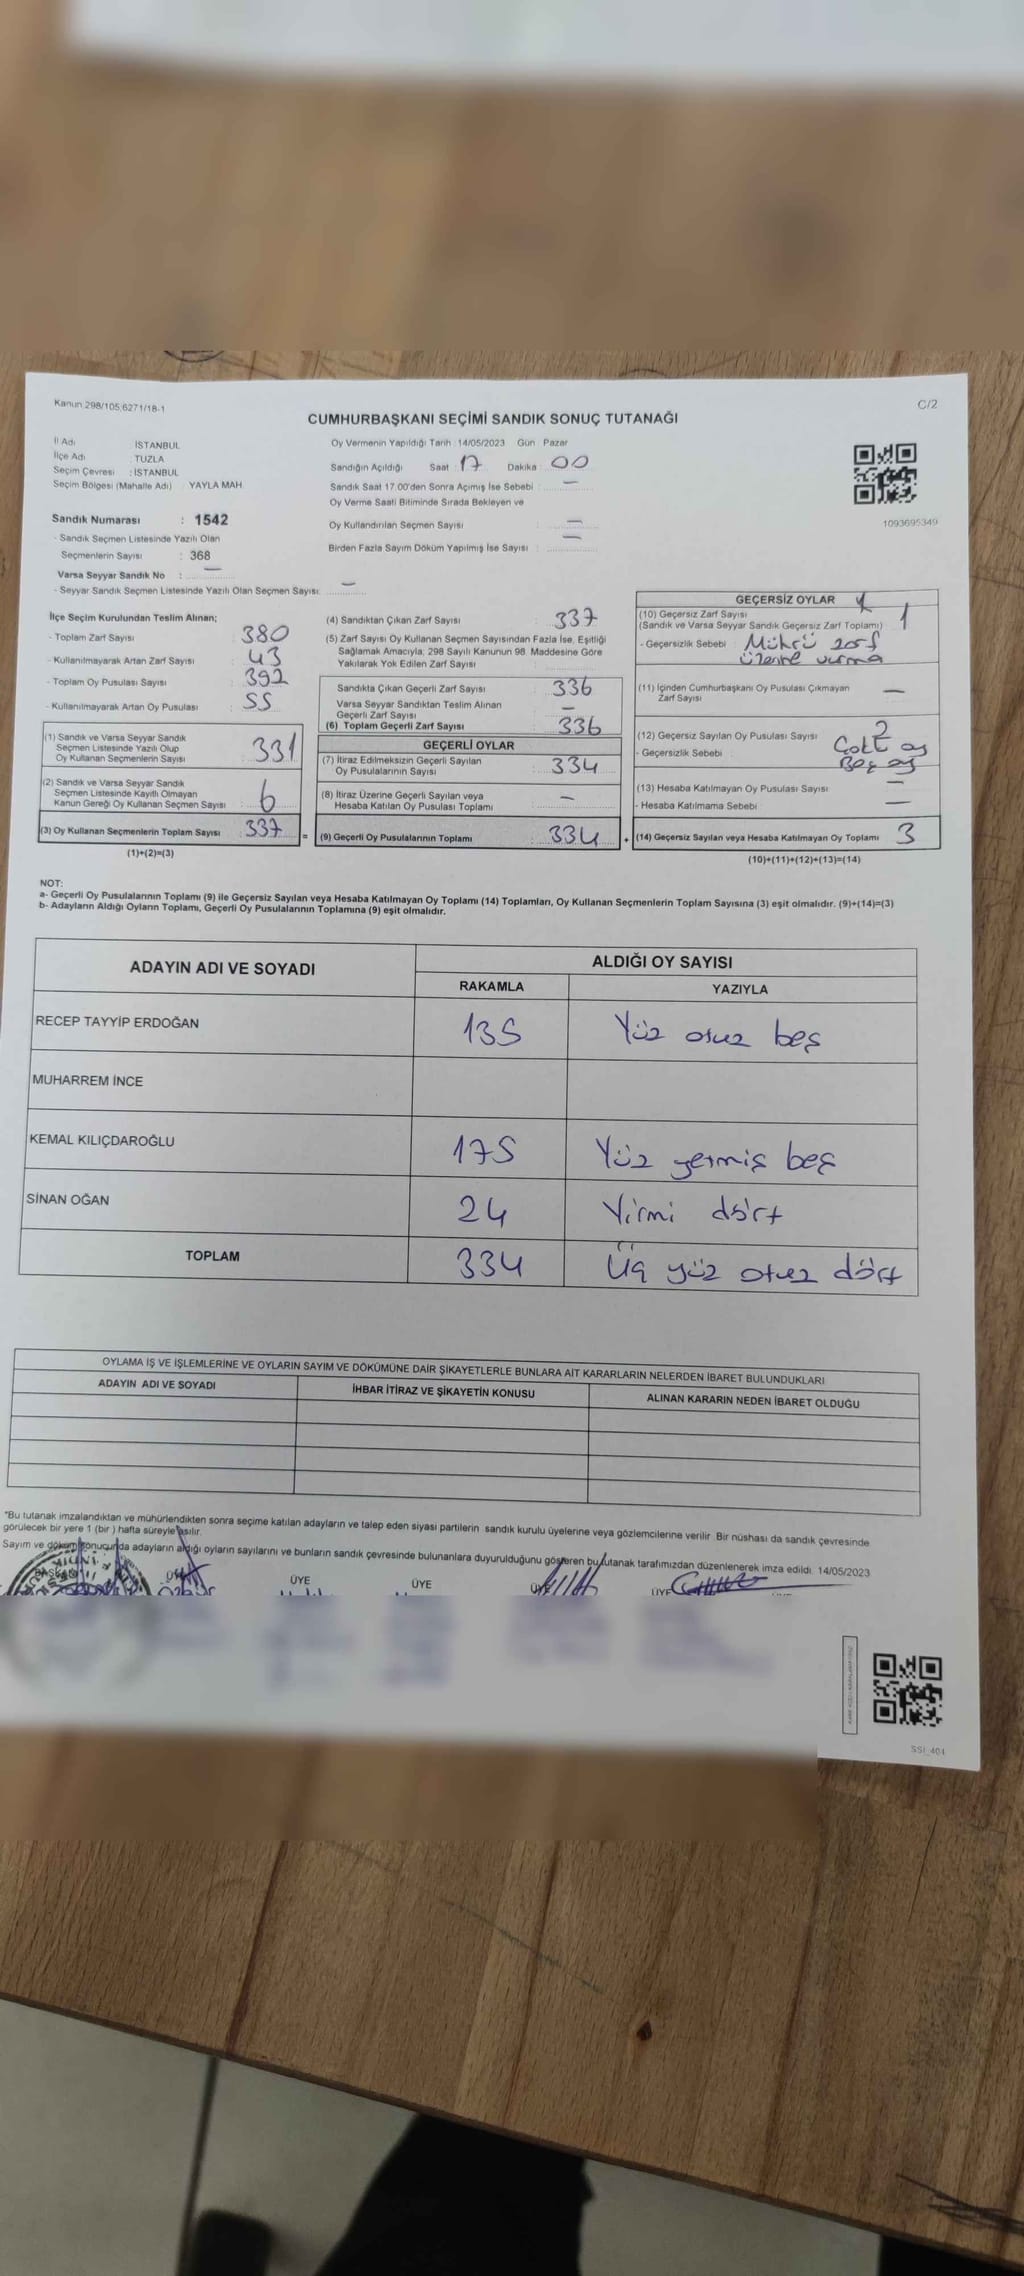 Kanun 298/105,6271/18-1
C/2
CUMHURBAŞKANI SEÇİMİ SANDIK SONUÇ TUTANAĞI
İl Adı : İSTANBUL
İlçe Adı : TUZLA
Seçim Çevresi : İSTANBUL
Seçim Bölgesi (Mahalle Adı) : YAYLA MAH.
Sandık Numarası : 1542
- Sandık Seçmen Listesinde Yazılı Olan
Seçmenlerin Sayısı : 368
Varsa Seyyar Sandık No : —
- Seyyar Sandık Seçmen Listesinde Yazılı Olan Seçmen Sayısı: —
Oy Vermenin Yapıldığı Tarih :14/05/2023 Gün : Pazar
Sandığın Açıldığı Saat : 17 Dakika : 00
Sandık Saat 17.00'den Sonra Açımış İse Sebebi : —
Oy Verme Saati Bitiminde Sırada Bekleyen ve
Oy Kullandırılan Seçmen Sayısı : —
Birden Fazla Sayım Döküm Yapılmış İse Sayısı : —
1093695349
İlçe Seçim Kurulundan Teslim Alınan;
- Toplam Zarf Sayısı : 380
- Kullanılmayarak Artan Zarf Sayısı : 43
- Toplam Oy Pusulası Sayısı : 392
- Kullanılmayarak Artan Oy Pusulası : 55
(1) Sandık ve Varsa Seyyar Sandık
Seçmen Listesinde Yazılı Olup
Oy Kullanan Seçmenlerin Sayısı : 331
(2) Sandık ve Varsa Seyyar Sandık
Seçmen Listesinde Kayıtlı Olmayan
Kanun Gereği Oy Kullanan Seçmen Sayısı : 6
(3) Oy Kullanan Seçmenlerin Toplam Sayısı : 337
(1)+(2)=(3)
(4) Sandıktan Çıkan Zarf Sayısı : 337
(5) Zarf Sayısı Oy Kullanan Seçmen Sayısından Fazla İse, Eşitliği
Sağlamak Amacıyla, 298 Sayılı Kanunun 98. Maddesine Göre
Yakılarak Yok Edilen Zarf Sayısı :
Sandıkta Çıkan Geçerli Zarf Sayısı : 336
Varsa Seyyar Sandıktan Teslim Alınan
Geçerli Zarf Sayısı : —
(6) Toplam Geçerli Zarf Sayısı : 336
GEÇERLİ OYLAR
(7) İtiraz Edilmeksizin Geçerli Sayılan
Oy Pusulalarının Sayısı : 334
(8) İtiraz Üzerine Geçerli Sayılan veya
Hesaba Katılan Oy Pusulası Toplamı : —
= (9) Geçerli Oy Pusulalarının Toplamı : 334
GEÇERSİZ OYLAR
(10) Geçersiz Zarf Sayısı 1
(Sandık ve Varsa Seyyar Sandık Geçersiz Zarf Toplamı)
- Geçersizlik Sebebi : Mührü zarf
üzerine vurma
(11) İçinden Cumhurbaşkanı Oy Pusulası Çıkmayan —
Zarf Sayısı
(12) Geçersiz Sayılan Oy Pusulası Sayısı : 2
- Geçersizlik Sebebi : Çoklu oy
Boş oy
(13) Hesaba Katılmayan Oy Pusulası Sayısı : —
- Hesaba Katılmama Sebebi : —
+ (14) Geçersiz Sayılan veya Hesaba Katılmayan Oy Toplamı : 3
(10)+(11)+(12)+(13)=(14)
NOT:
a- Geçerli Oy Pusulalarının Toplamı (9) ile Geçersiz Sayılan veya Hesaba Katılmayan Oy Toplamı (14) Toplamları, Oy Kullanan Seçmenlerin Toplam Sayısına (3) eşit olmalıdır. (9)+(14)=(3)
b- Adayların Aldığı Oyların Toplamı, Geçerli Oy Pusulalarının Toplamına (9) eşit olmalıdır.
ADAYIN ADI VE SOYADI ALDIĞI OY SAYISI
RAKAMLA YAZIYLA
RECEP TAYYİP ERDOĞAN 135 Yüz otuz beş
MUHARREM İNCE
KEMAL KILIÇDAROĞLU 175 Yüz yetmiş beş
SİNAN OĞAN 24 Yirmi dört
TOPLAM 334 Üç yüz otuz dört
OYLAMA İŞ VE İŞLEMLERİNE VE OYLARIN SAYIM VE DÖKÜMÜNE DAİR ŞİKAYETLERLE BUNLARA AİT KARARLARIN NELERDEN İBARET BULUNDUKLARI
ADAYIN ADI VE SOYADI İHBAR İTİRAZ VE ŞİKAYETİN KONUSU ALINAN KARARIN NEDEN İBARET OLDUĞU
*Bu tutanak imzalandıktan ve mühürlendikten sonra seçime katılan adayların ve talep eden siyasi partilerin sandık kurulu üyelerine veya gözlemcilerine verilir. Bir nüshası da sandık çevresinde
görülecek bir yere 1 (bir ) hafta süreyle asılır.
Sayım ve döküm sonucunda adayların aldığı oyların sayılarını ve bunların sandık çevresinde bulunanlara duyurulduğunu gösteren bu tutanak tarafımızdan düzenlenerek imza edildi. 14/05/2023
BAŞKAN ÜYE ÜYE ÜYE ÜYE ÜYE
SSİ_404